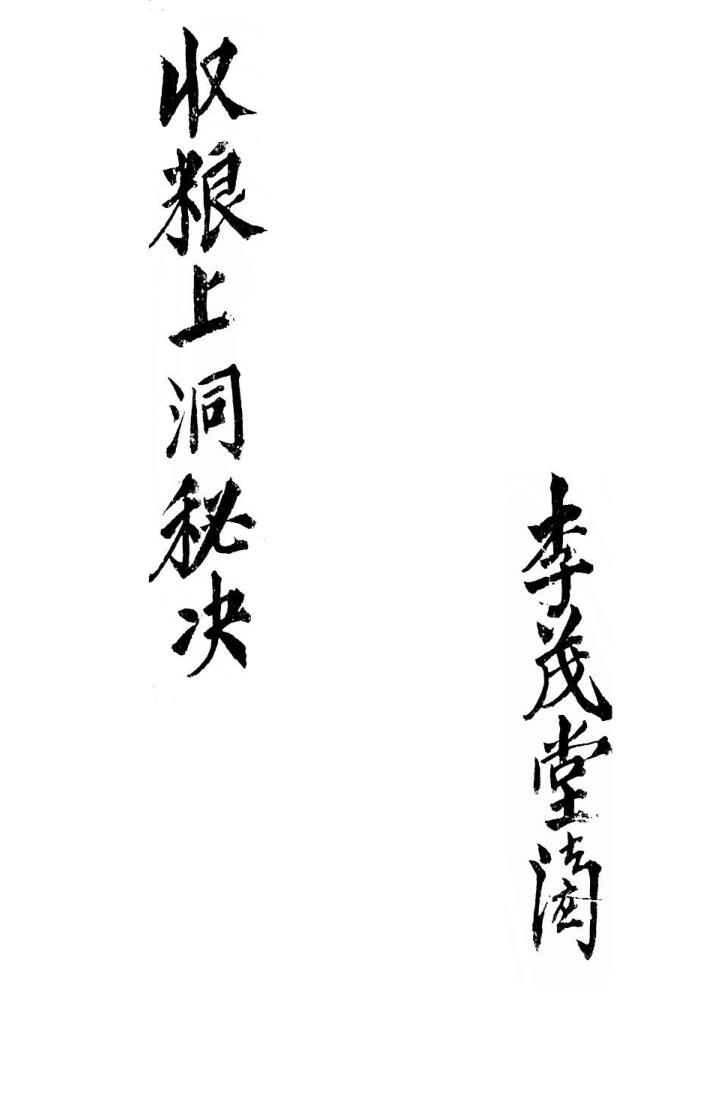 李茂堂
收粮上洞秘决